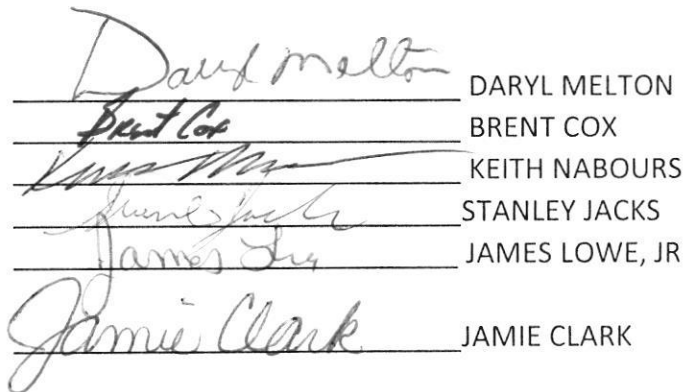 Daryl Melton DARYL MELTON
Brent Cox BRENT COX
KEITH NABOURS
STANLEY JACKS
James JAMES LOWE, JR
Jamie Clark JAMIE CLARK